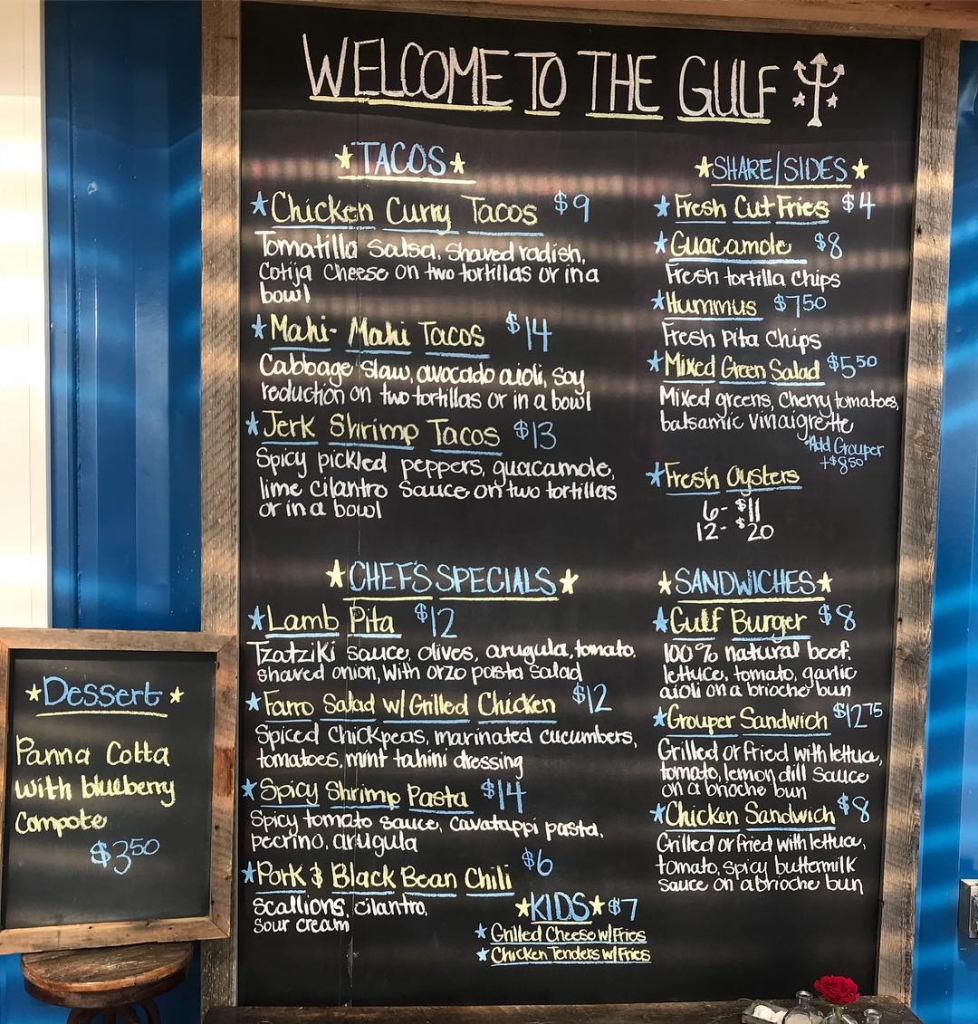 WELCOME TO THE GULF
TACOS
Chicken Curry Tacos $9
Tomatilla salsa, shaved radish,
Cotija cheese on two tortillas or in a
bowl
Mahi-Mahi Tacos $14
Cabbage slaw, avocado aioli, soy
reduction on two tortillas or in a bowl
Jerk Shrimp Tacos $13
Spicy pickled peppers, guacamole,
lime cilantro sauce on two tortillas
or in a bowl
SHARE/SIDES
Fresh Cut Fries $4
Guacamole $8
Fresh tortilla chips
Hummus $7.50
Fresh Pita Chips
Mixed Green Salad $5.50
Mixed greens, cherry tomatoes,
balsamic vinaigrette
Add Grouper
+$8.50
Fresh Oysters
6- $11
12- $20
CHEF'S SPECIALS
Lamb Pita $12
Tzatziki sauce, olives, arugula, tomato,
shaved onion, with orzo pasta salad
Farro Salad w/ Grilled Chicken $12
Spiced chickpeas, marinated cucumbers,
tomatoes, mint tahini dressing
Spicy Shrimp Pasta $14
Spicy tomato sauce, cavatappi pasta,
pecrino, arugula
Pork & Black Bean Chili $6
scallions, cilantro,
sour cream
KIDS $7
Grilled Cheese w/Fries
Chicken Tenders w/Fries
SANDWICHES
Gulf Burger $8
100% natural beef,
lettuce, tomato, garlic
aioli on a brioche bun
Grouper Sandwich $12.75
Grilled or fried with lettuce,
tomato, lemon dill sauce
on a brioche bun
Chicken Sandwich $8
Grilled or fried with lettuce,
tomato, spicy buttermilk
sauce on a brioche bun
Dessert
Panna Cotta
with blueberry
compote
$3.50